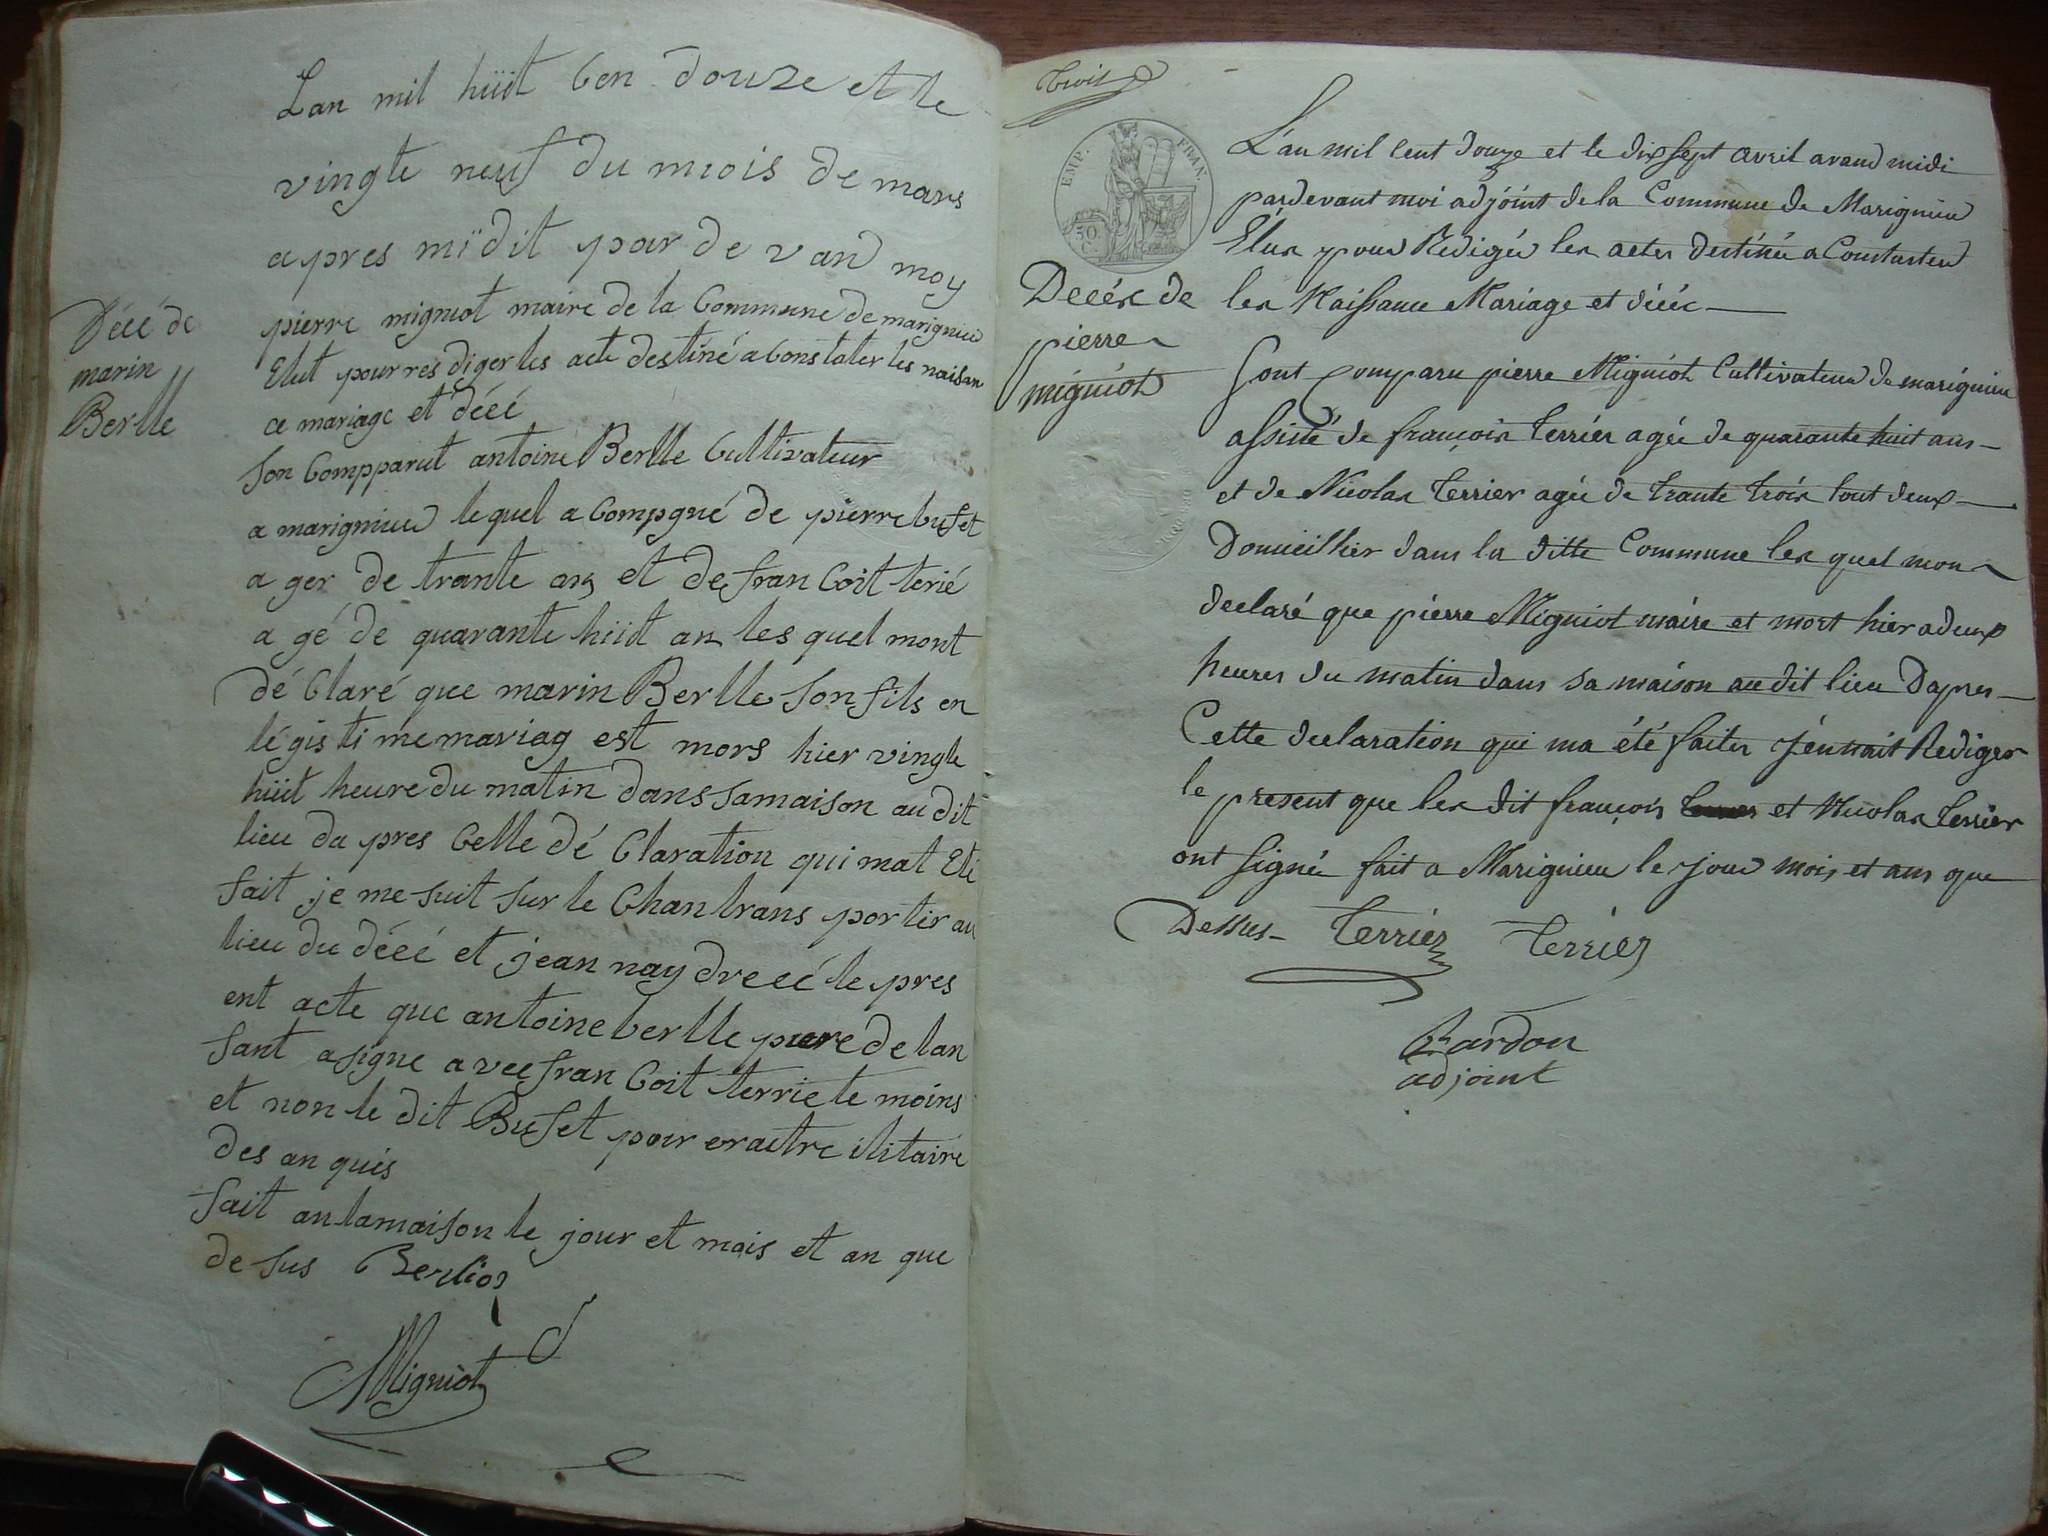 Lan mil hüit Cen douze et le
vingte neuf du miois de mars
apres mïdit par de vand moy
pierre migniot maire de la Commune de marignieu
Elut pour res diger les acte destiné a Cons tater les naisan
ce mariage et décé
Décé de
marin
Berlle
son Compparut antoine Berlle Cultivateur
a marignieu lequel a Compgné de pierre bufet
a ger de trante an et de fran Coit terié
a gé de quarante hüit an les quel mont
dé Claré que marin Berlle son fils en
légisti me mariag est mors hier vingte
hüit heure du matin dans samaison au dit
lieu da pres Celle dé Claration qui mat Eté
fait je me suit sur le Chan trans portir au
lieu du décé et jean nay drecé le pres
ent acte que antoine berlle pere de lan
fant a signe avec fran Coit terrie te moins
et non le dit Bufet pour eraitre ilitairé
des an quis
fait an lamaison le jour et mois et an que
de sus Berlioz
Migniot
trois
EMP. FRAN.
50 C.
L'an mil cent douze et le dix sept avril avand midi
pardevant moi adjóint de la Commune de Marignieu
Elus pour Redigér les actes destinée a Constasteu
les Naissance Mariage et décéc
Decés de
pierre
migniot
Sont Comparu pierre Migniot Cultivateur de marignieu
assisté de françois terriér agée de quarante huit ans
et de Nicolas terrier agée de trante trois tout deux
Domicilhier dans la ditte Commune les quel mon
declaré que piérre Migniot maire et mort hier a deux
heures du matin dans sa maison au dit lieu Dapres
Cette declaration qui ma été faites jénnait Rediger
le present que les dit françois et Nicolas terrier
ont signé fait a Marignieu le jour mois et ans que
Dessus terrier terriér
Bardon
adjoint